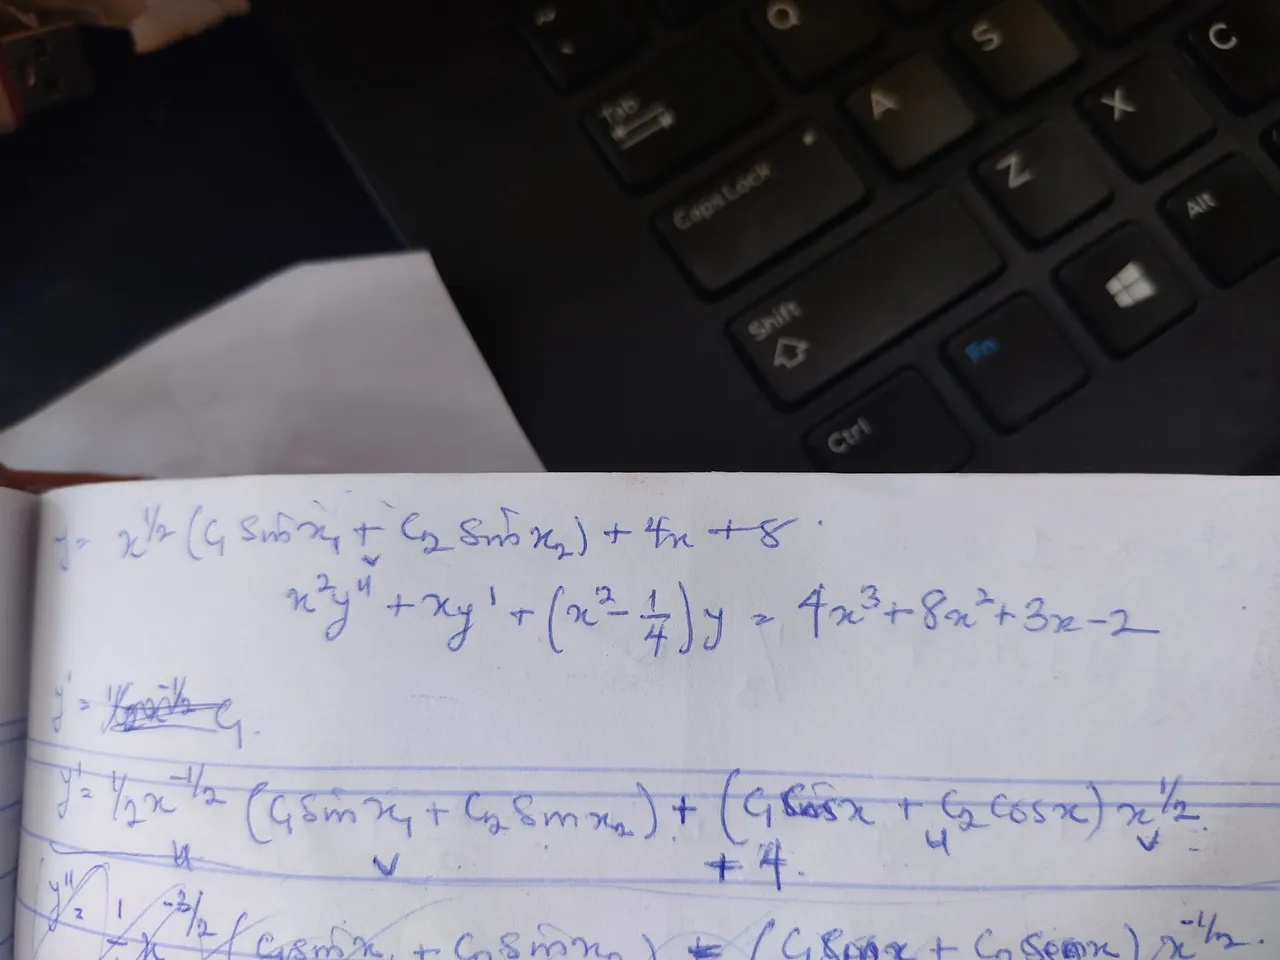 Q
S
C
Tab
A
X
Caps Lock
Z
Alt
Shift
Fn
Ctrl
y = x^1/2 (C1 Sin x1 + C2 Sin x2) + 4x + 8.
x²y'' + xy' + (x² - 1/4) y = 4x³ + 8x² + 3x - 2
y' = C1
y' = 1/2 x^-1/2 (C1 Sin x1 + C2 Sin x2) + (C1 Cos x + C2 Cos x) x^1/2
u v u v
+ 4.
y'' = x^-3/2 (C1 Sin x1 + C2 Sin x2) (C1 Sin x + C2 Sin x) x^-1/2.